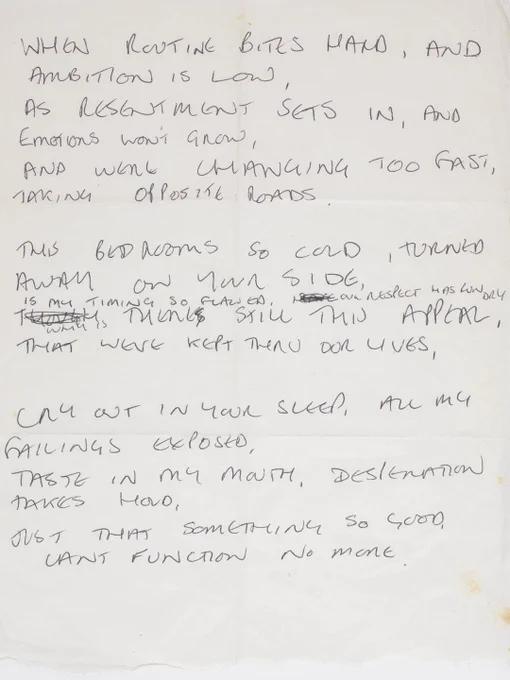 WHEN ROUTINE BITES HARD, AND
AMBITION IS LOW,
AS RESENTMENT SETS IN, AND
EMOTIONS WON'T GROW,
AND WERE CHANGING TOO FAST,
TAKING OPPOSITE ROADS.
THIS BEDROOMS SO COLD, TURNED
AWAY ON YOUR SIDE,
IS MY TIMING SO FLAWED. OUR RESPECT HAS RUN DRY
THERES STILL THIS APPEAL,
WHY IS
THAT WE'VE KEPT THRU OUR LIVES,
CRY OUT IN YOUR SLEEP, ALL MY
FAILINGS EXPOSED,
TASTE IN MY MOUTH, DESPERATION
TAKES HOLD,
JUST THAT SOMETHING SO GOOD,
CANT FUNCTION NO MORE.